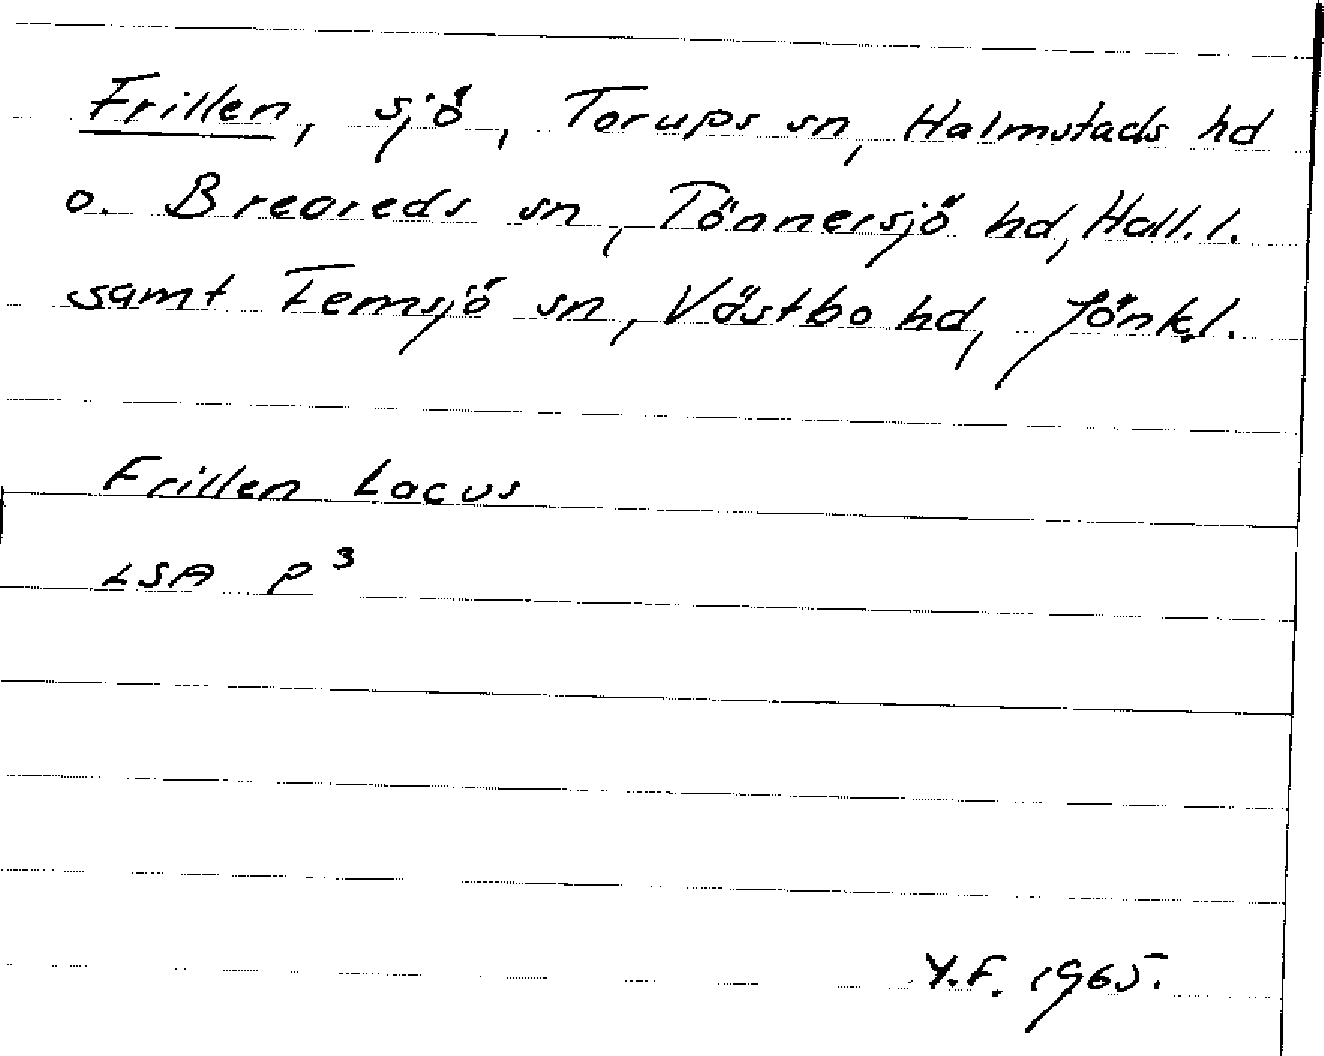 Frillen, sjö, Torups sn, Halmstads hd
o. Breareds sn, Tönnersjö hd, Hall. l.
samt Femsjö sn, Västbo hd, Jönk.l.
Frillen Lacus
LSA P³
Y.F. 1965.